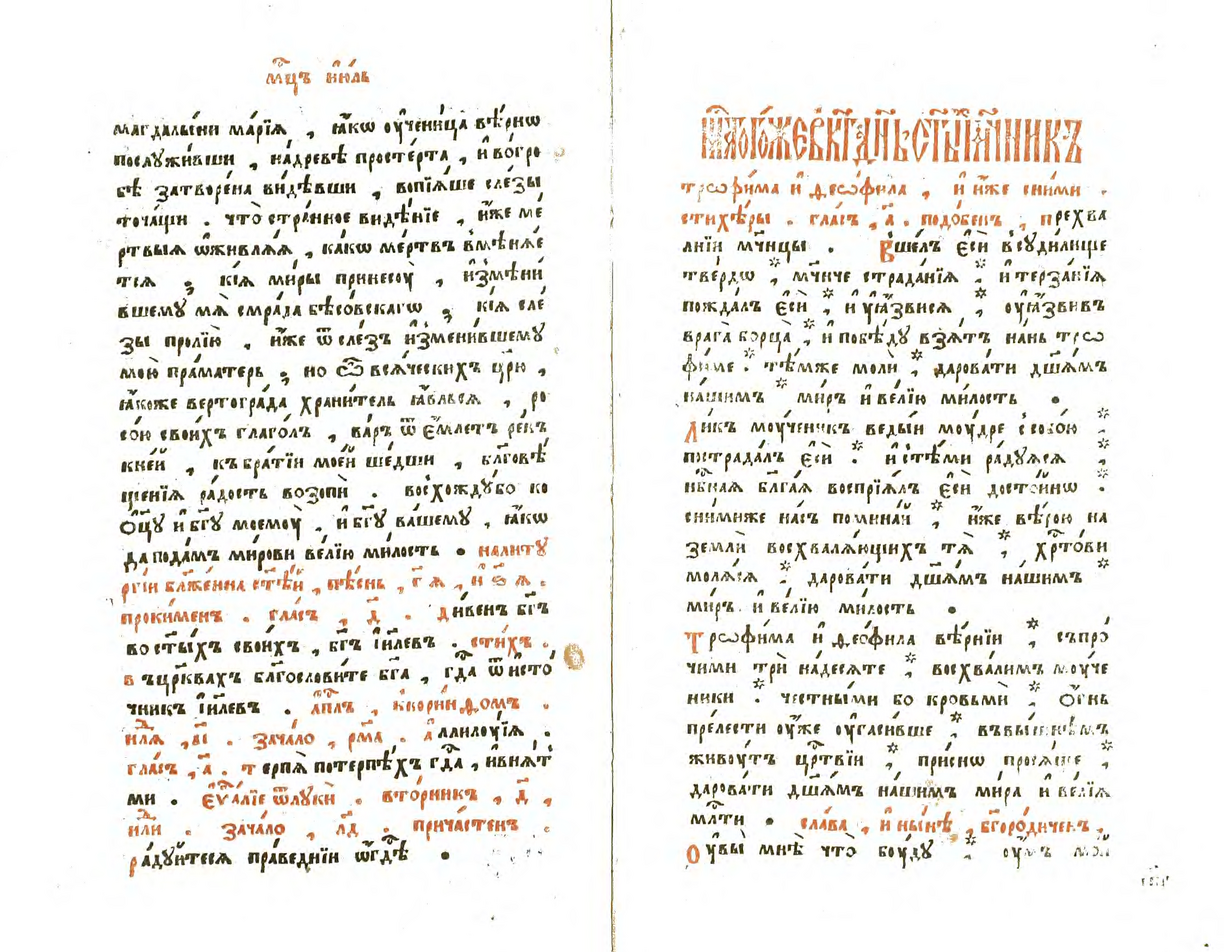 мц҃ъ ию́ль
магдалы́ни марі́я , ꙗ́кѡ оу҆чени́ца вѣ́рнѡ
послужи́вши , на́древѣ просте́рта , и҆ вогро
бѣ затворе́на ви́дѣвши , вопїѧ́ше сле́зы
точа́щи . что̀ стра́нное видѣ́нїе , и҆́же ме́
ртвыѧ ѡ҆живлѧ́ѧ , ка́кѡ ме́ртвъ вмѣнѧ́е
тсѧ ; кі́ѧ ми́ры принесоу̀ , и҆змѣни́
вшему мѧ̀ смра́да бѣсо́вскагѡ ; кі́ѧ сле́
зы пролїю̀ , и҆́же ѿ сле́зъ и҆змени́вшему
мою̀ пра́матерь ; но ѽ всѧ́ческихъ цр҃ю̀ ,
ꙗ҆́коже вертогра́да храни́тель ꙗ҆ви́лсѧ , ро
со́ю свои́хъ глаго́лъ , ва́ръ ѿ е҆́млетъ ре́къ
кне́й , къ бра́тїи мое́й ше́дши , бл҃говѣ
ще́нїѧ ра́дость возопѝ . восхожду́бо ко
ѻ҆ц҃у̀ и҆ бг҃у моемоу̀ , и҆ бг҃у ва́шему , ꙗ҆́кѡ
да пода́мъ ми́рови ве́лїю ми́лость . налиту
ргі́и бл҃же́нна ст҃е́й , пѣ́снь , г҃ ѧ , и҆ ѕ҃ ѧ .
проки́менъ . гла́съ , д҃ . ди́венъ бг҃ъ
во ст҃ы́хъ свои́хъ , бг҃ъ і҆и҃левъ . сти́хъ .
в ъцр҃квахъ бл҃гослови́те бг҃а , гд҃а ѿ и҆сто́
чникъ і҆и҃левъ . а҆пл҃ъ , ккори́нѳомъ .
нд҃лѧ , в҃і . зача́ло , рм҃а . а҆ллилоу́їѧ .
гла́съ , а҃ . т ерпѧ̀ потерпѣ́хъ гд҃а , и҆внѧ́т
ми . е҆ѵ҃а́лїе ѿлукѝ . вто́рникъ , д҃ ,
нд҃ли . зача́ло , лд҃ . прича́стенъ .
ра́дуйтесѧ пра́ведніи ѡ҆гд҃ѣ .
трѡфи́ма и҆ ѳео́фила , и҆ и҆́же сни́ми .
стихѣ́ры . гла́съ , а҃ . подо́бенъ , прехва́
лнїи мч҃нцы . Вше́лъ є҆сѝ всуди́лище
тве́рдѡ * мч҃нче страда́нїѧ * и҆ терза́нїѧ
пожда́лъ є҆сѝ * и҆ у҆ꙗ́звисѧ * оу҆ꙗ́звивъ
врага̀ борца̀ * и҆ побѣ́ду взѧ́тъ на́нь трѡ
фи́ме * тѣ́мже молѝ * дарова́ти дш҃а́мъ
на́шимъ * ми́ръ и҆ ве́лїю ми́лость .
Ли́къ моу́ченикъ веды́й моу́дре собо́ю *
пострада́лъ є҆сѝ * и҆ стѣ́ми ра́дуѧсѧ *
нб҃наѧ бл҃га́ѧ воспрїѧ́лъ є҆сѝ досто́йнѡ *
сни́миже на́съ помина́й * и҆́же вѣ́рою на
землѝ восхвалѧ́ющихъ тѧ̀ * хр҃то́ви
молѧ́сѧ * дарова́ти дш҃а́мъ на́шимъ *
ми́ръ и҆ ве́лїю ми́лость .
Трѡфи́ма и҆ ѳео́фила вѣ́рнїи * съпро́
чими трѝ на́десѧте * восхва́лимъ моу́че
ники * че́стными бо кровьмѝ * ѻ҆́гнь
пре́лести оу҆́же оу҆гаси́вше * въвы́шнѣмъ
живоу́тъ цр҃твїи * при́снѡ просѧ́ще *
дарова́ти дш҃а́мъ на́шимъ ми́ра и҆ ве́лїѧ
мл҃ти . сла́ва , и҆ ны́нѣ , бг҃оро́диченъ ,
Оу҆вы̀ мнѣ̀ что̀ боу́ду * оу҆́мъ мо́й